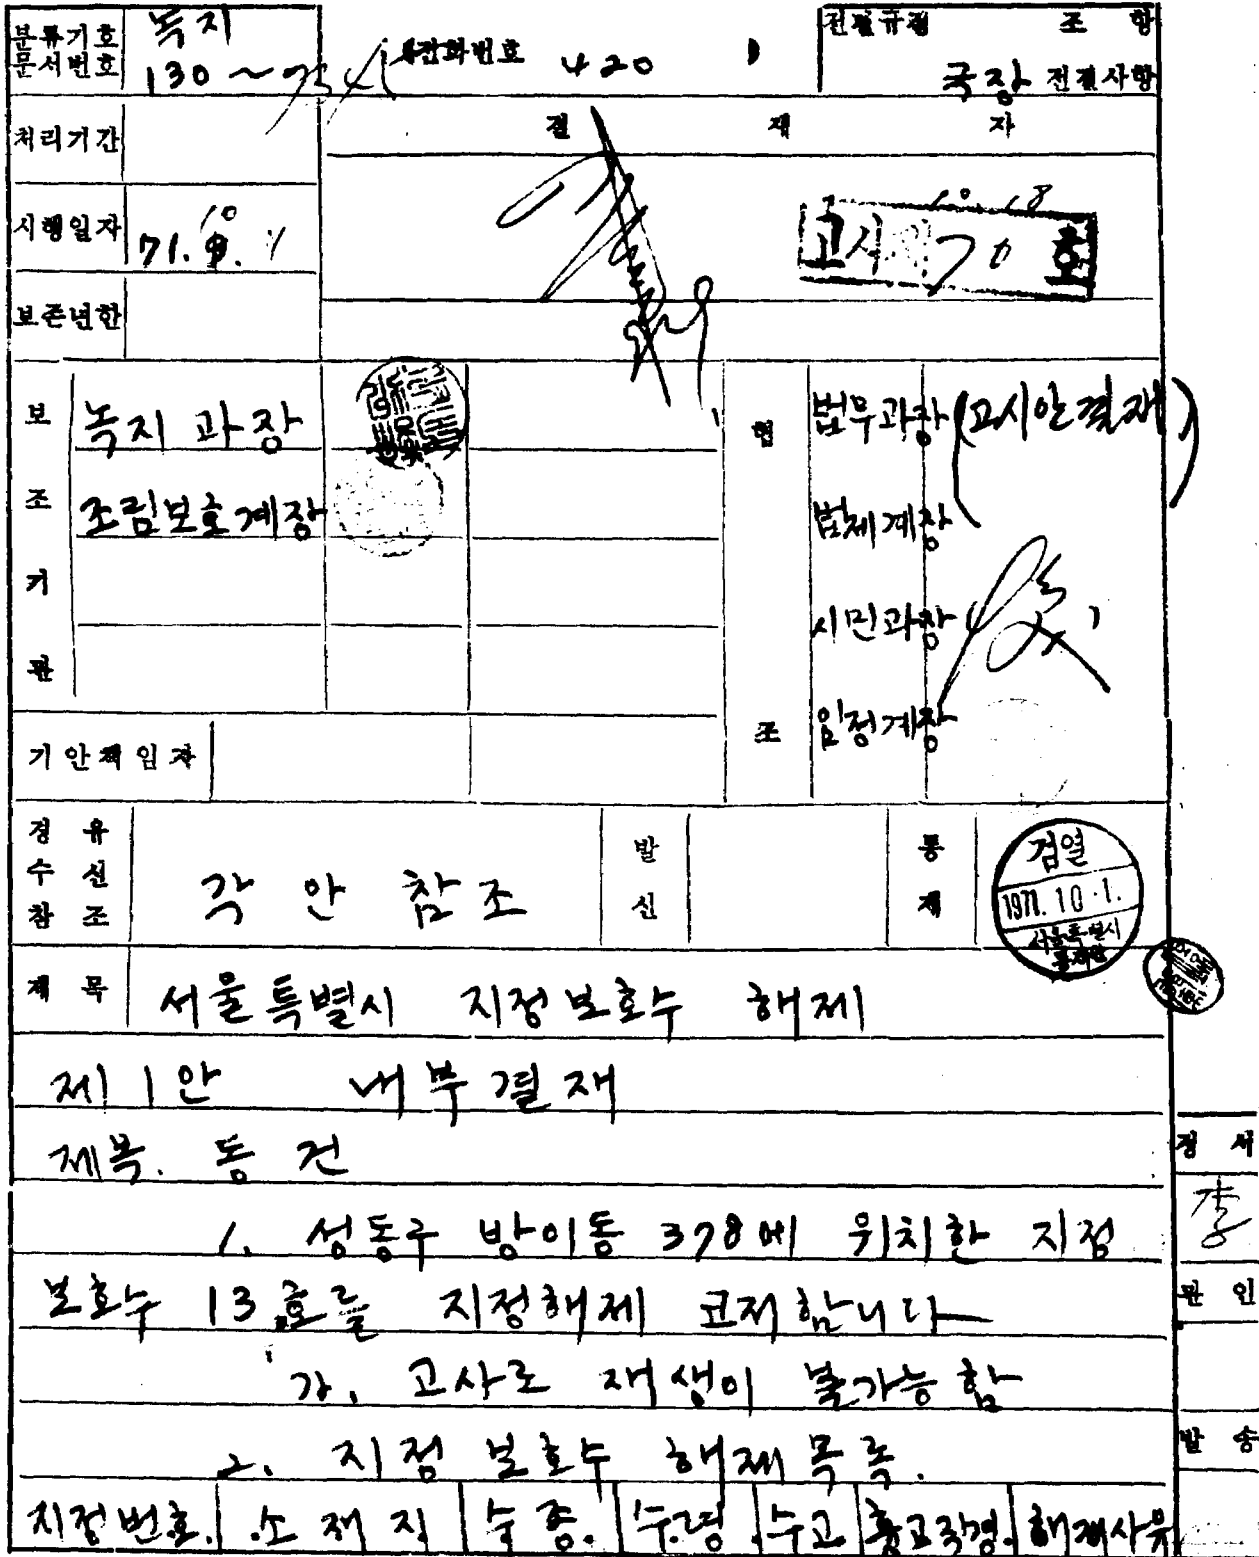 분류기호 문서번호 녹지 130 ~ (전화번호 420 ) 전결규정 조 항
국장 전결사항
처리기간 결 재 자
시행일자 71. 10. 1
10. 18
고시 제 70 호
보존년한
보 조 기 관
녹지 과장
조림보호계장
협 조
법무과장 (고시안결재)
법제계장
시민과장
임정계장
기안책임자
경유 수신 참조 각 안 참조 발신 통제
검열
1971. 10. 1.
서울특별시
통제관
제 목 서울특별시 지정보호수 해제
제 1 안 내부결재
제목. 동 건
1. 성동구 방이동 378에 위치한 지정
보호수 13호를 지정해제 코저합니다
가. 고사로 재생이 불가능함
2. 지정 보호수 해제목록.
지정번호. 소재지 수종. 수령. 수고 흉고직경. 해제사유
정 서
李
관 인
발 송